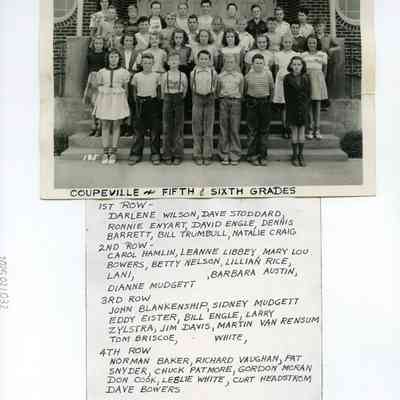 COUPEVILLE ~ FIFTH & SIXTH GRADES
1ST ROW-
DARLENE WILSON, DAVE STODDARD,
RONNIE ENYART, DAVID ENGLE, DENNIS
BARRETT, BILL TRUMBULL, NATALIE CRAIG
2ND ROW-
CAROL HAMLIN, LEANNE LIBBEY MARY LOU
BOWERS, BETTY NELSON, LILLIAN RICE,
LANI, , BARBARA AUSTIN,
DIANNE MUDGETT
3RD ROW
JOHN BLANKENSHIP, SIDNEY MUDGETT
EDDY EISTER, BILL ENGLE, LARRY
ZYLSTRA, JIM DAVIS, MARTIN VAN RENSUM
TOM BRISCOE, WHITE,
4TH ROW
NORMAN BAKER, RICHARD VAUGHAN, PAT
SNYDER, CHUCK PATMORE, GORDON MORAN
DON COOK, LESLIE WHITE, CURT HEADSTROM
DAVE BOWERS